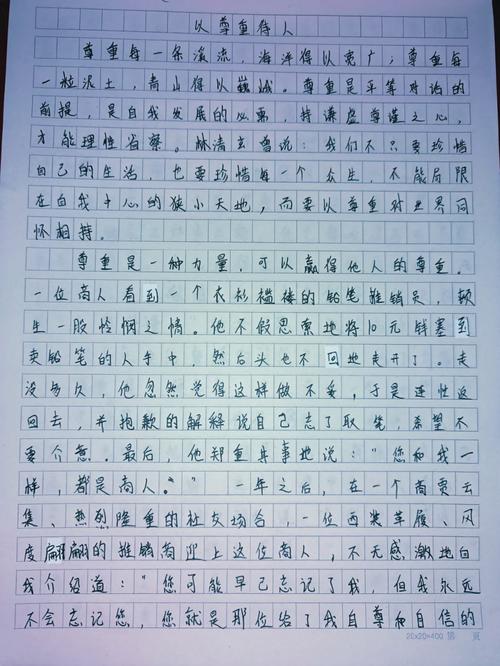 以尊重待人
尊重每一条溪流，海洋得以宽广；尊重每
一粒泥土，青山得以巍峨。尊重是平等对话的
前提，是自我发展的必要，持谦虚尊谨之心，
才能理性省察。林清玄曾说：我们不只要珍惜
自己的生活，也要珍惜每一个众生，不能局限
在自我中心的狭小天地，而要以尊重对世界同
怀相持。
尊重是一种力量，可以赢得他人的尊重。
一位商人看到一个衣衫褴褛的铅笔推销员，顿
生一股怜悯之情。他不假思索地将10元钱塞到
卖铅笔的人手中，然后头也不回地走开了。走
没多久，他忽然觉得这样做不妥，于是连忙返
回去，并抱歉的解释说自己忘了取笔，希望不
要介意。最后，他郑重其事地说：“您和我一
样，都是商人。” 一年之后，在一个商贾云
集、热烈隆重的社交场合，一位西装革履、风
度翩翩的推销商迎上这位商人，不无感激地自
我介绍道：“您可能早已忘记了我，但我永远
不会忘记您，您就是那位给了我自尊和自信的
20x20=400 第 頁